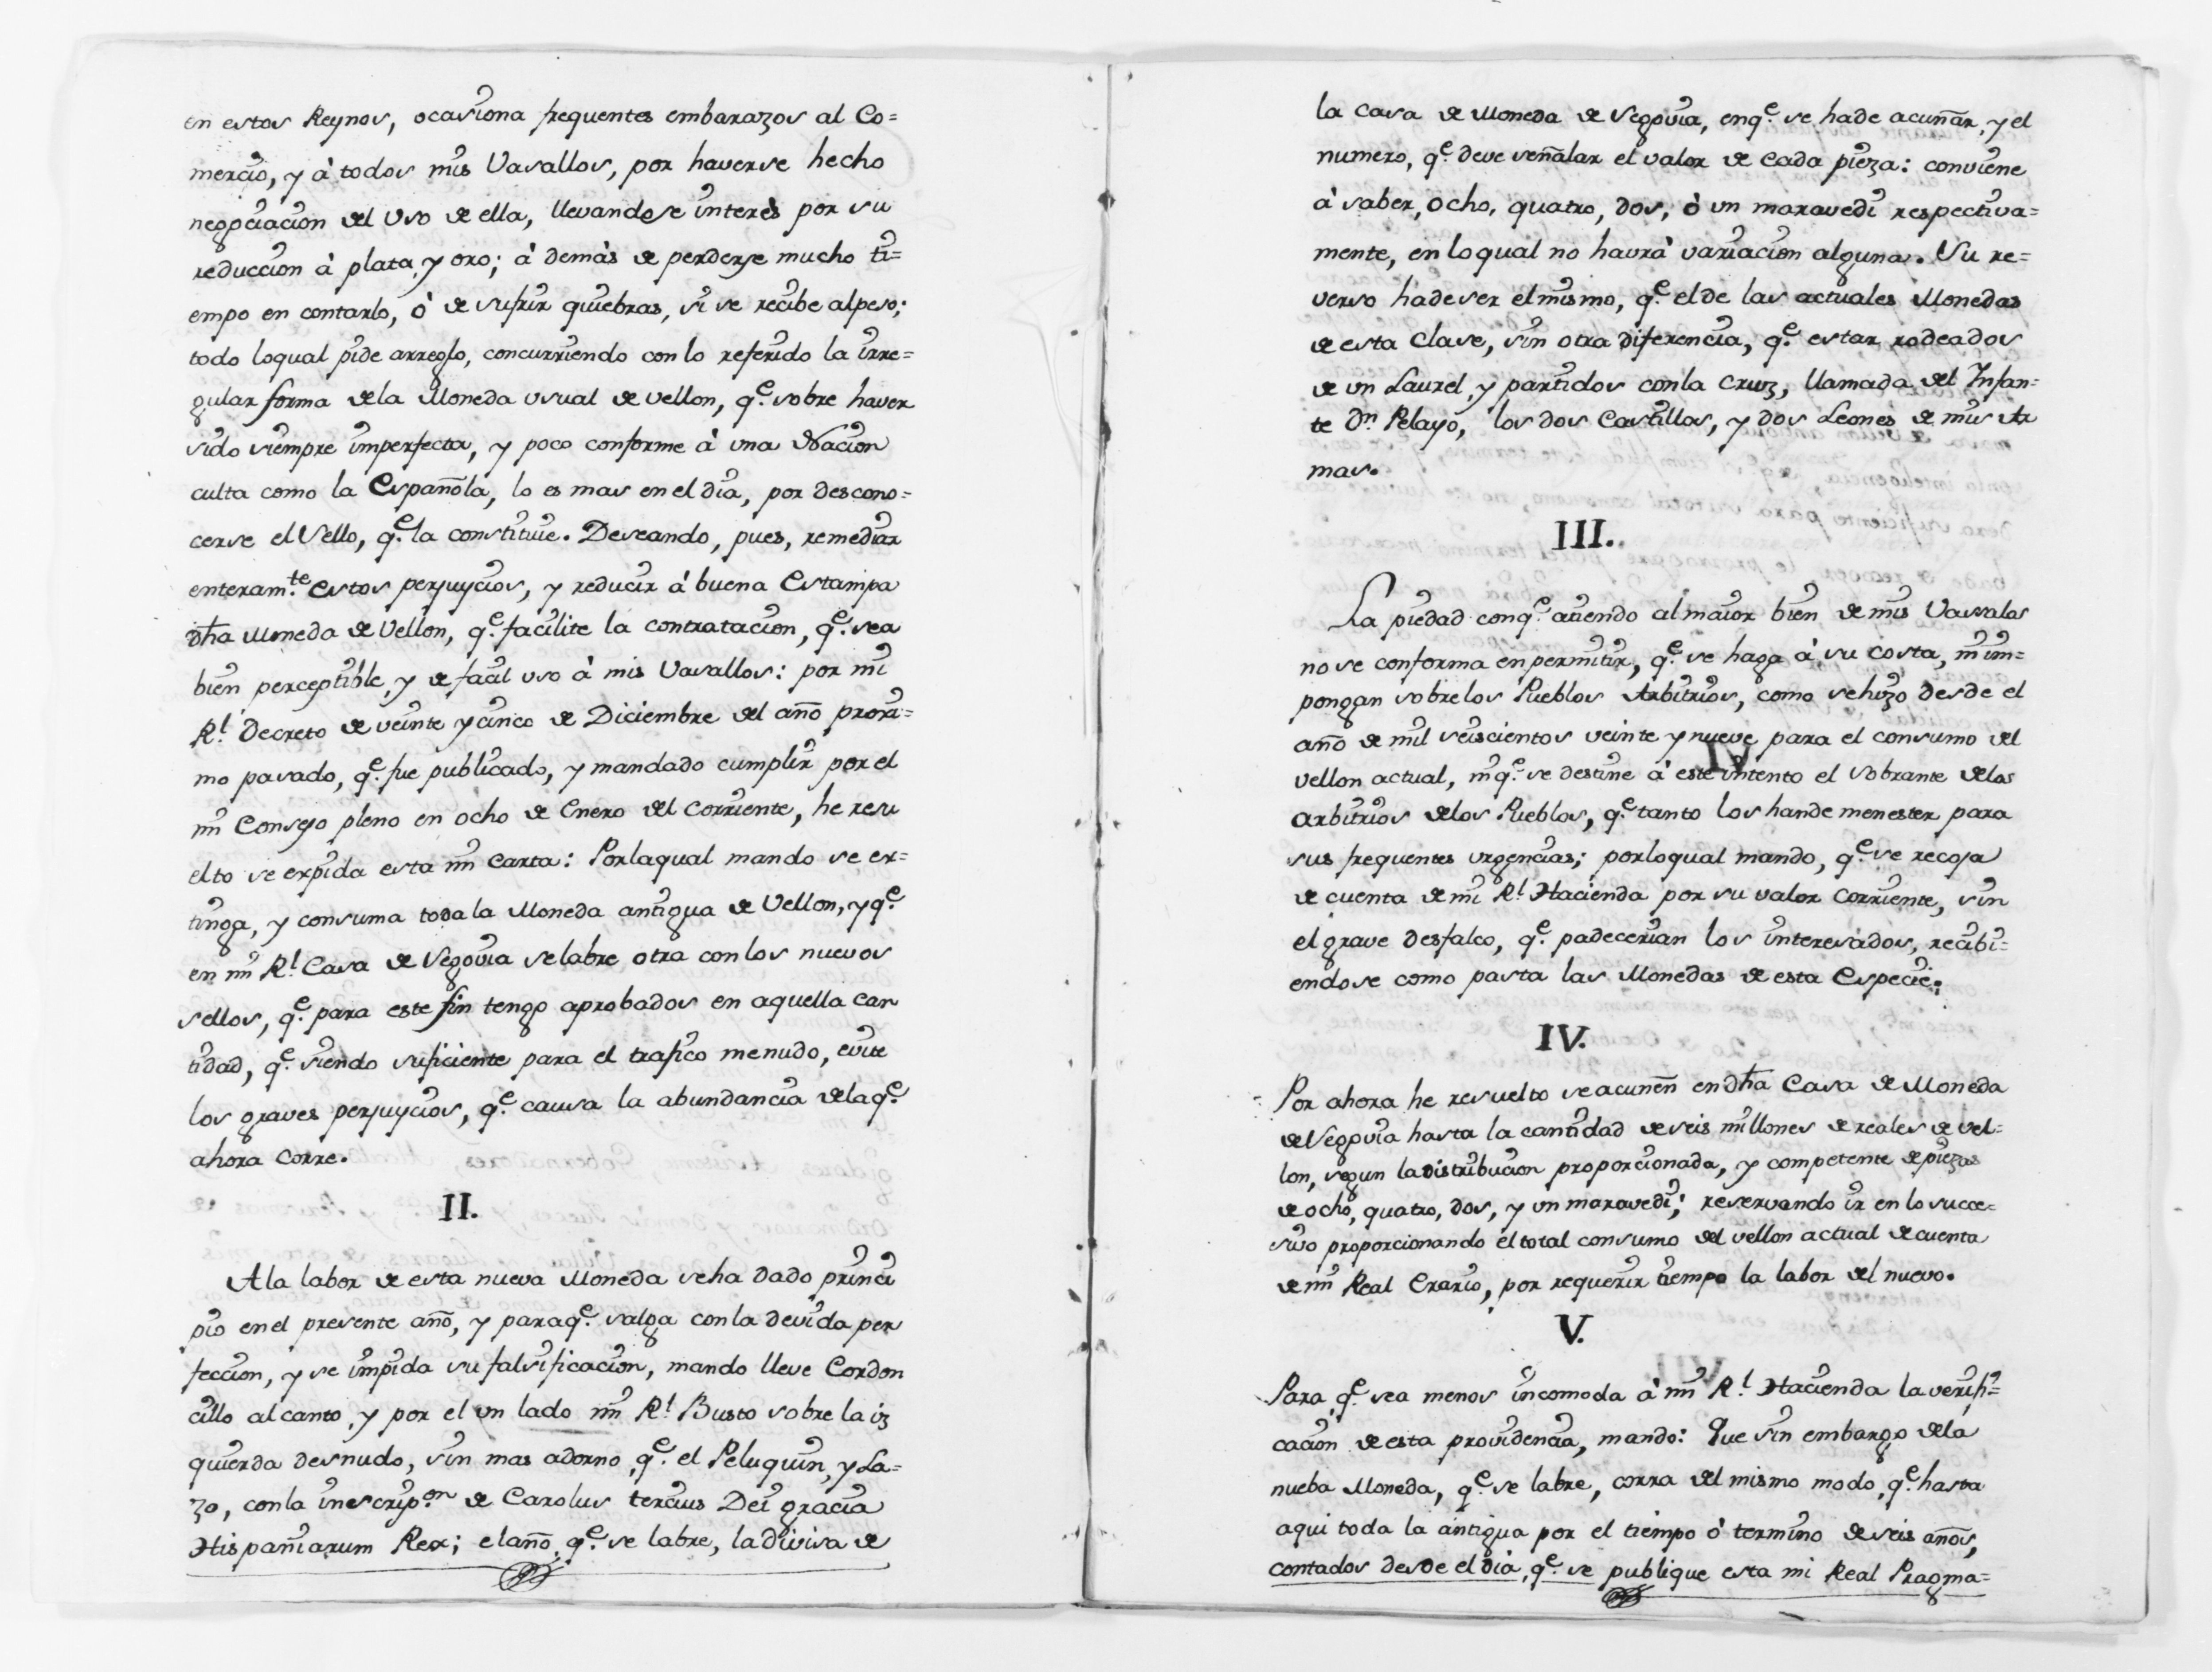 en estos Reynos, ocasiona frequentes embarazos al Co=
mercio, y à todos mis Vasallos, por haverse hecho
negociacion del uso de ella, llevandose interès por su
reduccion à plata, y oro; à demàs de perderse mucho ti=
empo en contarlo, ò de sufrir quiebras, si se recibe alpeso;
todo loqual pide arreglo, concurriendo con lo referido la irre=
gular forma dela Moneda usual de vellon, q.e sobre haver
sido siempre imperfecta, y poco conforme à una Nacion
culta como la Española, lo es mas en el dia, por descono=
cerse el Sello, q.e la constituie. Deseando, pues, remediar
enteram.te estos perjuycios, y reducir à buena Estampa
dha Moneda de Vellon, q.e facilite la contratacion, q.e sea
bien perceptible, y de facil uso à mis Vasallos: por mi
R.l Decreto de veinte y cinco de Diciembre del año proxi=
mo pasado, q.e fue publicado, y mandado cumplir por el
mi Consejo pleno en ocho de Enero del corriente, he resu
elto se expida esta mi Carta: Porlaqual mando se ex=
tinga, y consuma toda la Moneda antigua de Vellon, y q.e
en mi R.l Casa de Segovia se labre otra con los nuevos
sellos, q.e para este fin tengo aprobados en aquella can
tidad, q.e siendo suficiente para el trafico menudo, evite
los graves perjuycios, q.e causa la abundancia dela q.e
ahora corre.
II.
Ala labor de esta nueva Moneda seha dado princi
pio en el presente año, y paraq.e salga con la devida per
feccion, y se impida su falsificacion, mando lleve Cordon
cillo al canto, y por el un lado mi R.l Busto sobre la iz
quierda desnudo, sin mas adorno, q.e el Peluquin, y La=
zo, con la inescrip.on de Carolus tercius Dei gracia
Hispaniarum Rex; el año, q.e se labre, la Divisa de
la Casa de Moneda de Segovia, enq.e se hade acuñar, y el
numero, q.e deve señalar el valor de cada pieza: conviene
à saber, ocho, quatro, dos, ò un maravedi respectiva=
mente, en lo qual no havrà variacion alguna. Su re=
verso hade ser el mismo, q.e el de las actuales Monedas
de esta Clase, sin otra diferencia, q.e estar rodeados
de un Laurel, y partidos con la Cruz, llamada del Infan=
te Dn Pelayo, los dos Castillos, y dos Leones de mis Ar
mas.
III.
La piedad con q.e atiendo al maior bien de mis Vasalos
no se conforma en permitir, q.e se haga à su costa, ni im=
pongan sobre los Pueblos Arbitrios, como se hizo desde el
año de mil seiscientos veinte y nueve para el consumo del
vellon actual, ni q.e se destine à este intento el sobrante delos
arbitrios delos Pueblos, q.e tanto los hande menester para
sus frequentes urgencias; porloqual mando, q.e se recoja
de cuenta de mi R.l Hacienda por su valor corriente, sin
el grave desfalco, q.e padecerian los interesados, recibi=
endose como pasta las Monedas de esta Especie.
IV.
Por ahora he resuelto se acuñen en dha Casa de Moneda
de Segovia hasta la cantidad de seis millones de reales de vel=
lon, segun la distribucion proporcionada, y competente de piezas
de ocho, quatro, dos, y un maravedi; reservando ir en lo succe=
sivo proporcionando el total consumo del vellon actual de cuenta
de mi Real Erario, por requerir tiempo la labor del nuevo.
V.
Para q.e sea menos incomoda à mi R.l Hacienda la verifi=
cacion de esta providencia, mando: Que sin embargo dela
nueba Moneda, q.e se labre, corra del mismo modo, q.e hasta
aqui toda la antigua por el tiempo ò termino de seis años,
contados desde el dia, q.e se publique esta mi Real Pragma=